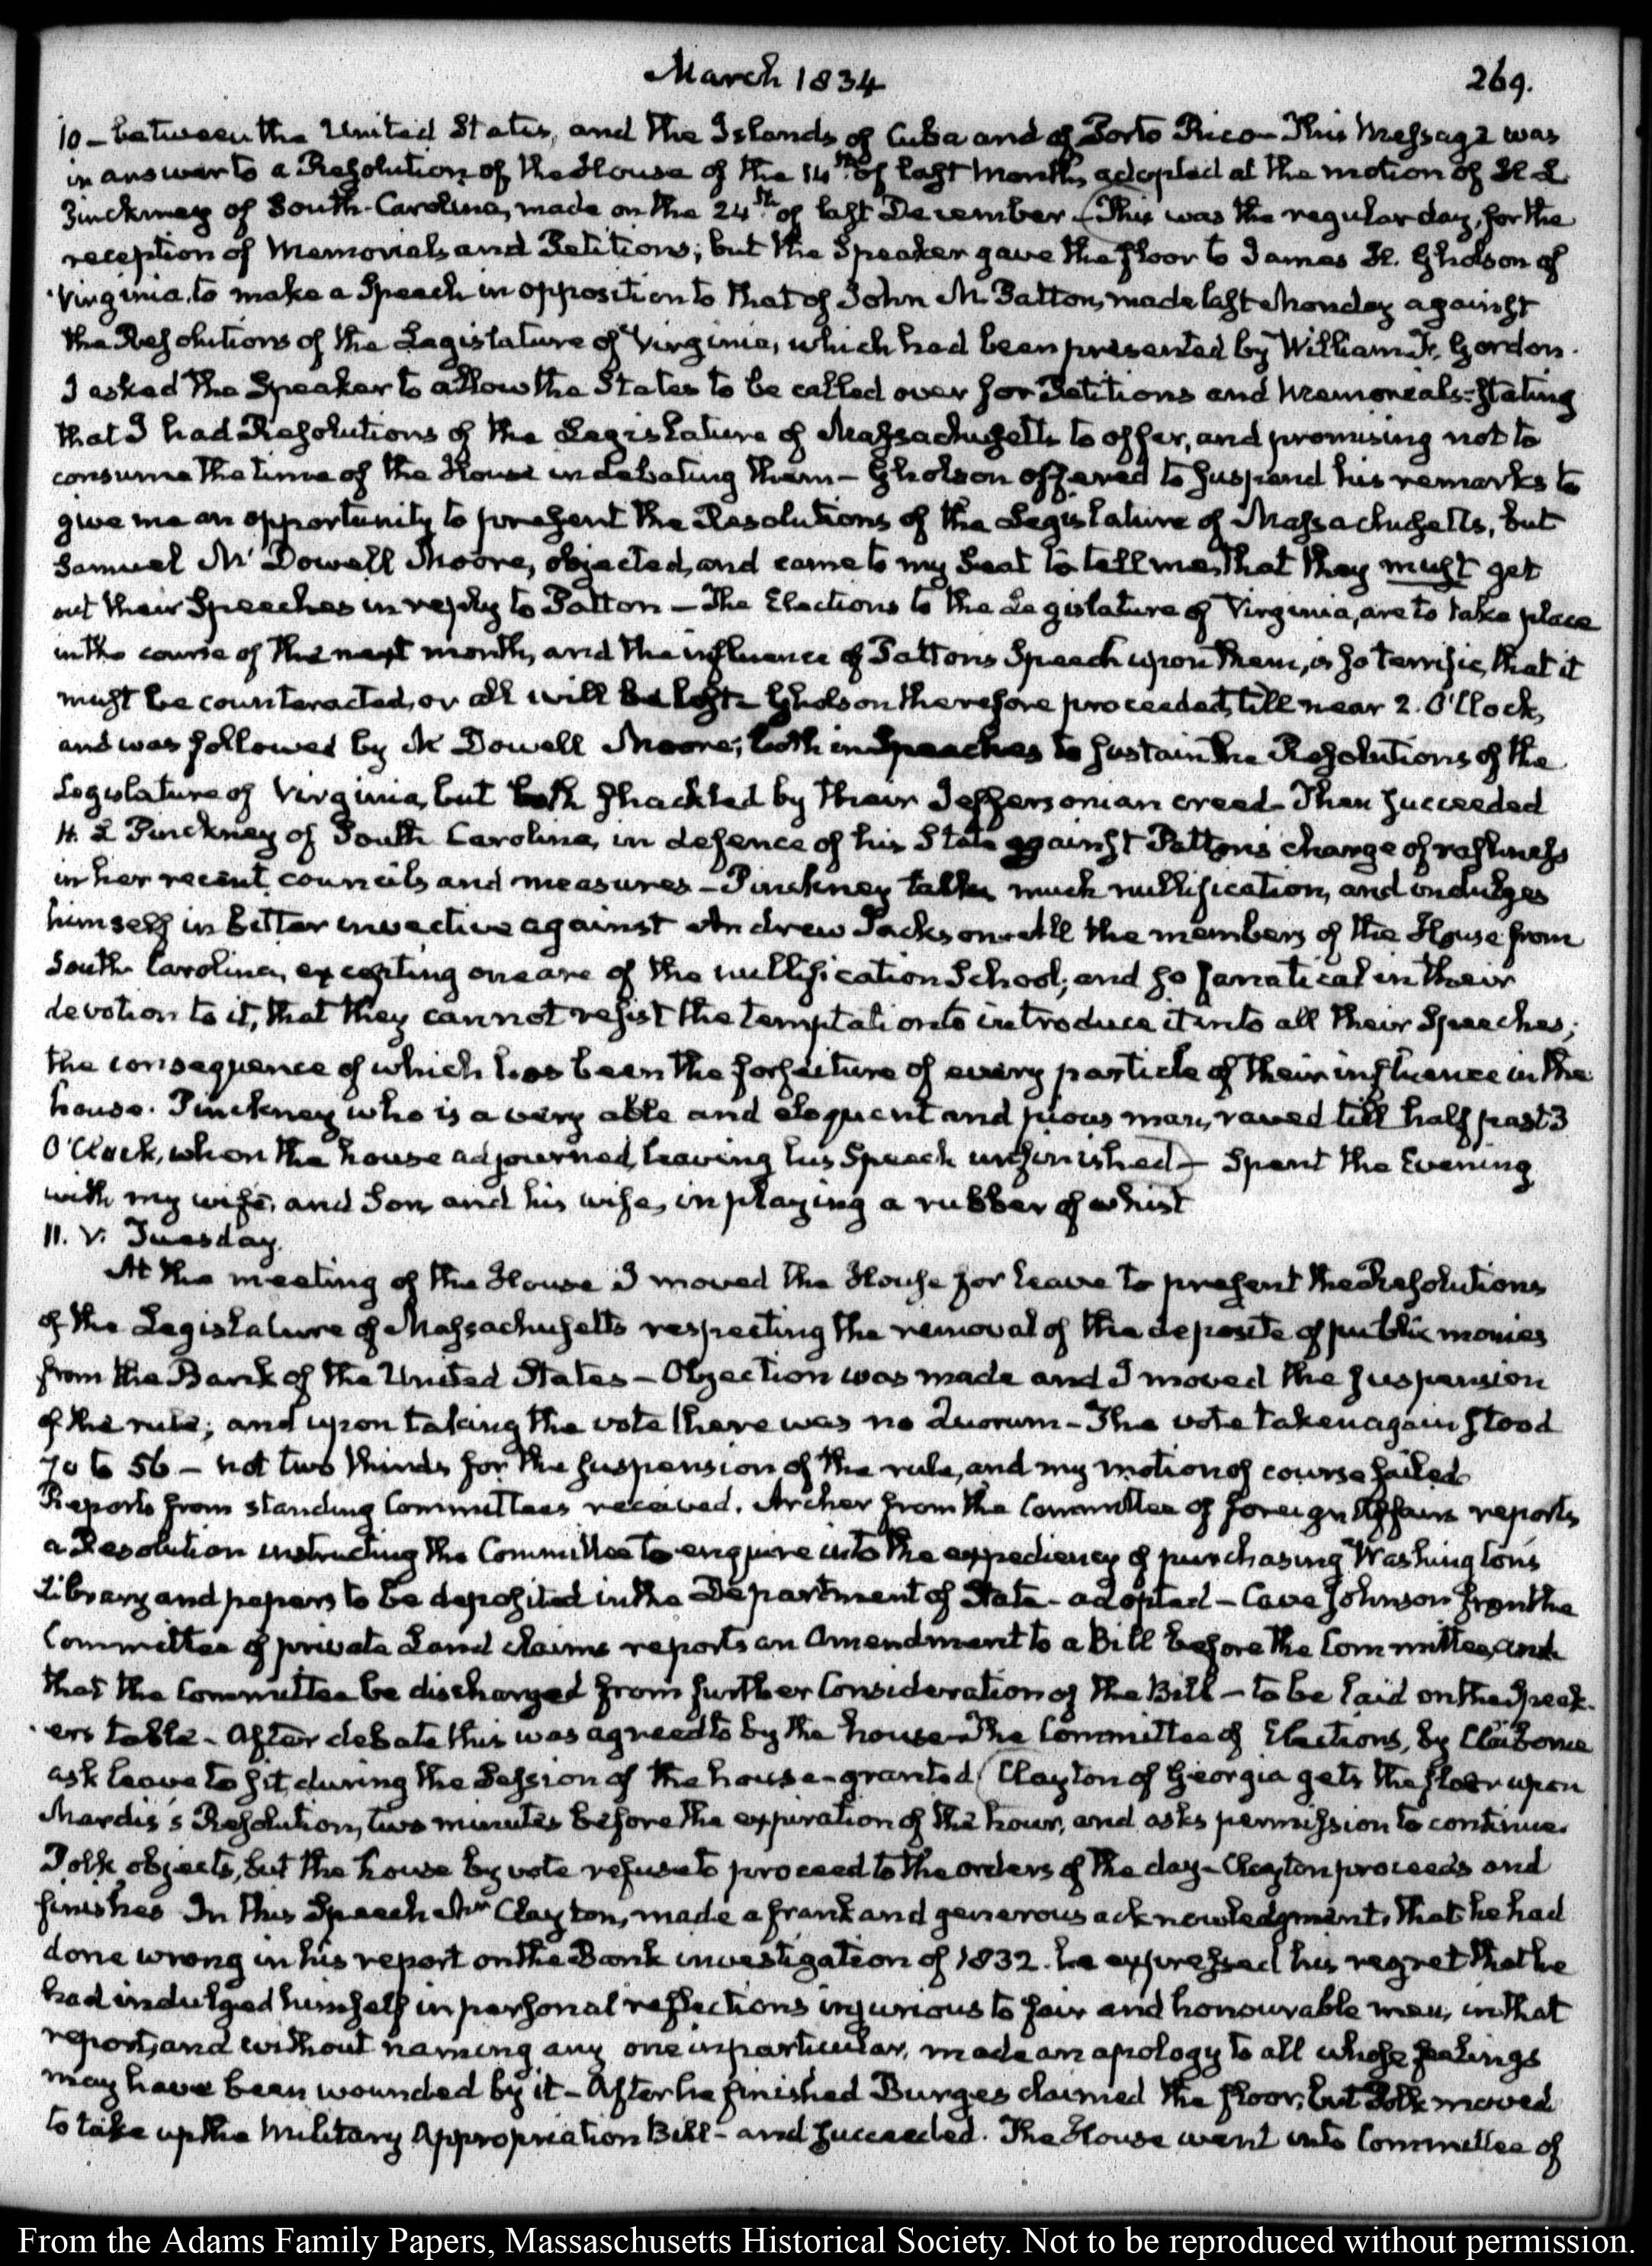 March 1834 269.
10 – between the United States, and the Islands of Cuba and of Porto Rico – This Message was
in answer to a Resolution of the House of the 14th of last Month, adopted at the motion of H. L
Pinckney of South-Carolina, made on the 24th of last December – (This was the regular day, for the
reception of Memorials and Petitions; but the Speaker gave the floor to James H. Gholson of
Virginia, to make a Speech in opposition to that of John M. Patton, made last Monday against
the Resolutions of the Legislature of Virginia, which had been presented by William F. Gordon.
I asked the Speaker to allow the States to be called over for Petitions and Memorials – stating
that I had Resolutions of the Legislature of Massachusetts to offer, and promising not to
consume the time of the House in debating them – Gholson offered to suspend his remarks to
give me an opportunity to present the Resolutions of the Legislature of Massachusetts, but
Samuel Mc Dowell Moore, objected, and came to my Seat to tell me, that they must get
out their Speeches in reply to Patton – The Elections to the Legislature of Virginia, are to take place
in the course of the next month, and the influence of Pattons Speech upon them, is so terrific, that it
must be counteracted, or all will be lost – Gholson therefore proceeded, till near 2. O'Clock,
and was followed by Mc Dowell Moore; both in Speeches to sustain the Resolutions of the
Legislature of Virginia, but both shackled by their Jeffersonian creed – Then succeeded
H. L Pinckney of South Carolina, in defence of his State against Patton's charge of rashness
in her recent councils and measures – Pinckney talks much nullification, and indulges
himself in bitter invective against Andrew Jackson – All the members of the House from
South Carolina, excepting one are of the nullification School; and so fanatical in their
devotion to it, that they cannot resist the temptation to introduce it into all their Speeches;
the consequence of which has been the forfeiture of every particle of their influence in the
house. Pinckney who is a very able and eloquent and pious man, raved till half past 3
O'Clock, when the house adjourned, leaving his Speech unfinished) – Spent the Evening
with my wife, and Son, and his wife, in playing a rubber of whist
11. V. Tuesday.
At the meeting of the House I moved the House for leave to present the Resolutions
of the Legislature of Massachusetts respecting the removal of the deposite of public monies
from the Bank of the United States – Objection was made and I moved the suspension
of the rule; and upon taking the vote there was no Quorum – The vote taken again stood
70 to 56 – not two thirds for the suspension of the rule, and my motion of course failed
Reports from standing Committees received. Archer from the Committee of foreign Affairs reports
a Resolution instructing the Committee to enquire into the expediency of purchasing Washington's
Library and papers to be deposited in the Department of State – adopted – Cave Johnson from the
Committee of private Land claims reports an Amendment to a Bill before the Committee, and
that the Committee be discharged from further Consideration of the Bill – to be laid on the Speak-
ers table – After debate this was agreed to by the house – The Committee of Elections, by Claiborne
ask leave to sit during the Session of the house – granted (Clayton of Georgia gets the floor upon
Mardis's Resolution, two minutes before the expiration of the hour, and asks permission to continue.
Polk objects, but the house by vote refuse to proceed to the orders of the day – Clayton proceeds and
finishes In this Speech Mr Clayton, made a frank and generous acknowledgment, that he had
done wrong in his report on the Bank investigation of 1832. he expressed his regret that he
had indulged himself in personal reflections injurious to fair and honourable men, in that
report, and without naming any one in particular, made an apology to all whose feelings
may have been wounded by it – After he finished Burges claimed the floor, but Polk moved
to take up the Military Appropriation Bill – and succeeded. The House went into Committee of
From the Adams Family Papers, Massachusetts Historical Society. Not to be reproduced without permission.